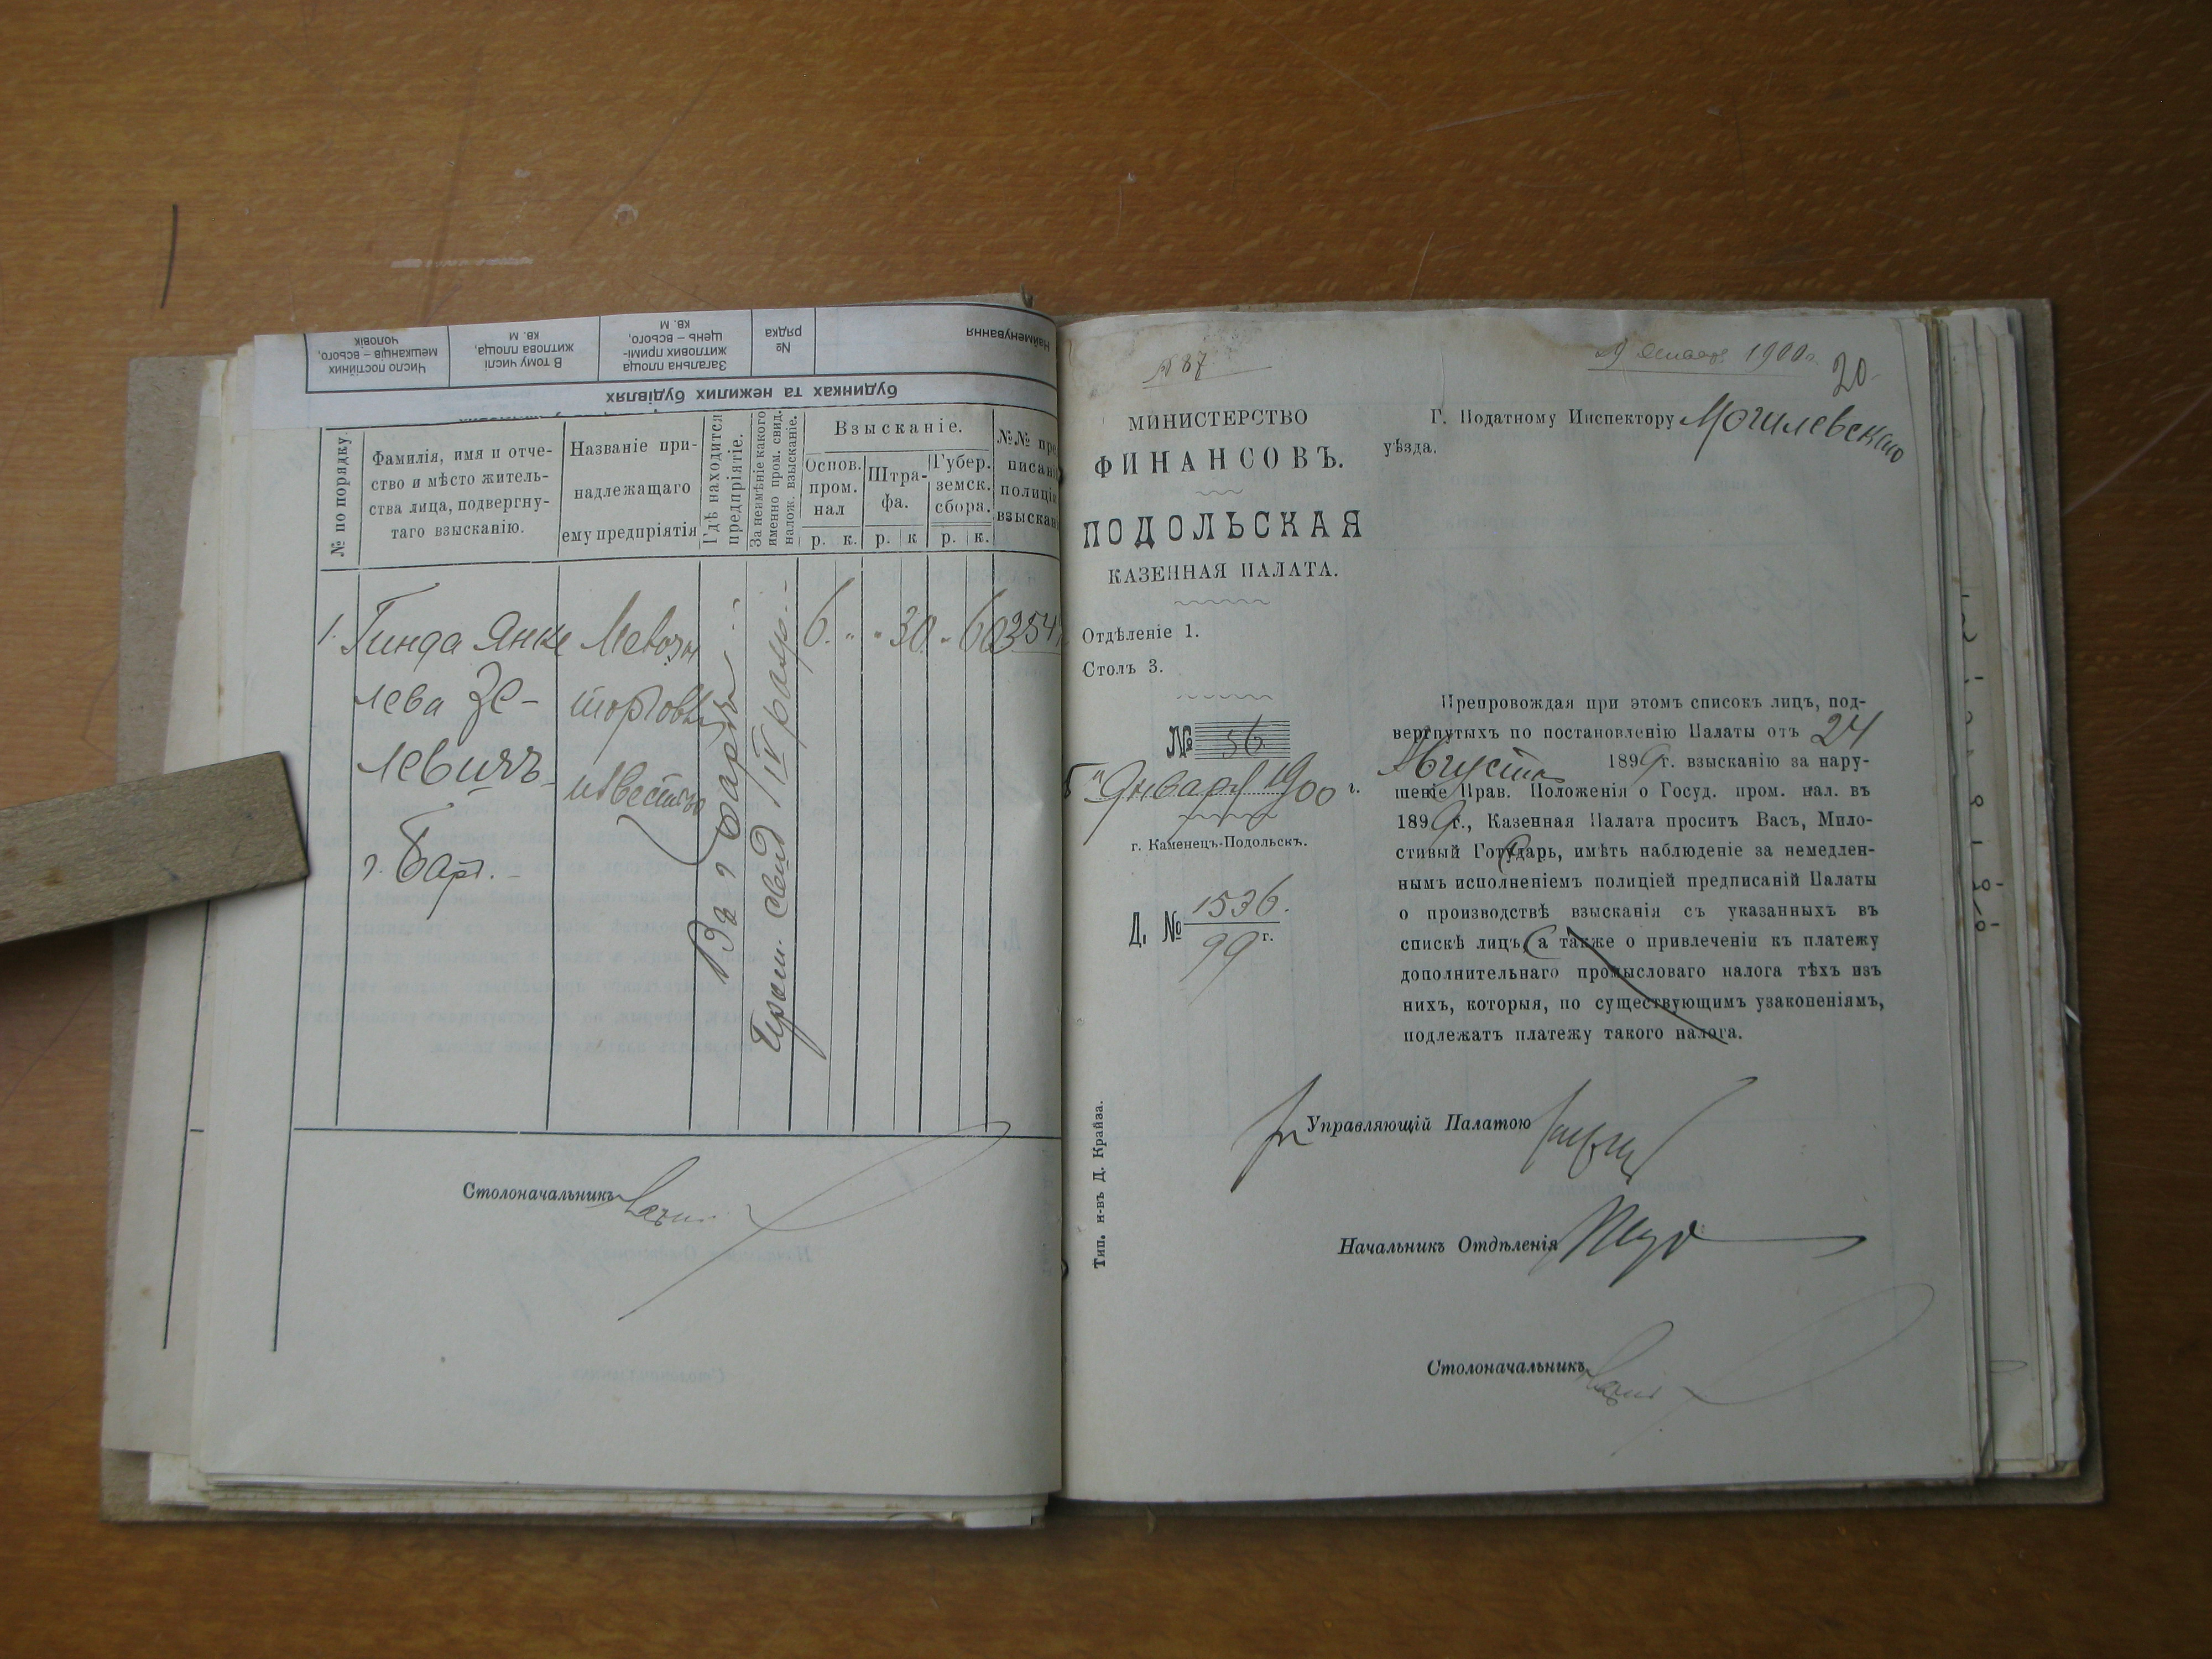 Число постійних
мешканців – всього,
чоловік
В тому числі
житлова площа,
кв. м
Загальна площа
житлових примі-
щень – всього,
кв. м
№
рядка
Найменування
будинках та нежилих будівлях
№ по порядку.
Фамилія, имя и отче-
ство и мѣсто житель-
ства лица, подвергну-
таго взысканію.
Названіе при-
надлежащаго
ему предпріятія
Гдѣ находится
предпріятіе.
За неимѣніе какого
именно пром. свид.
налож. взысканіе.
Взысканіе.
Основ.
пром.
нал
р. к.
Штра-
фа.
р. к
Губер.
земск.
сбора.
р. к.
№№ пре
писан
полиці
взыскан
1. Гинда Янке
лева Зе-
левичъ
г. Бар.
торговля
известью
Въ г Барѣ
Пром. свид IV разр.
6. " " 30 " 60 354
Столоначальникъ
№ 87
9 Января 1900 г.
20
МИНИСТЕРСТВО
ФИНАНСОВЪ.
ПОДОЛЬСКАЯ
КАЗЕННАЯ ПАЛАТА.
Отдѣленіе 1.
Столъ 3.
№ 56
5 " Января 1900 г.
г. Каменецъ-Подольскъ.
Д. № 1536/99 г.
Тип. н-въ Д. Крайза.
Г. Податному Инспектору Могилевскаго
уѣзда.
Препровождая при этомъ списокъ лицъ, под-
вергнутыхъ по постановленію Палаты отъ 24
Августа 1899 г. взысканію за нару-
шеніе Прав. Положенія о Госуд. пром. нал. въ
1899 г., Казенная Палата проситъ Васъ, Мило-
стивый Государь, имѣть наблюденіе за немедлен-
нымъ исполненіемъ полиціей предписаній Палаты
о производствѣ взысканія съ указанныхъ въ
спискѣ лицъ, а также о привлеченіи къ платежу
дополнительнаго промысловаго налога тѣхъ изъ
нихъ, которыя, по существующимъ узаконеніямъ,
подлежатъ платежу такого налога.
Управляющій Палатою
Начальникъ Отдѣленія
Столоначальникъ